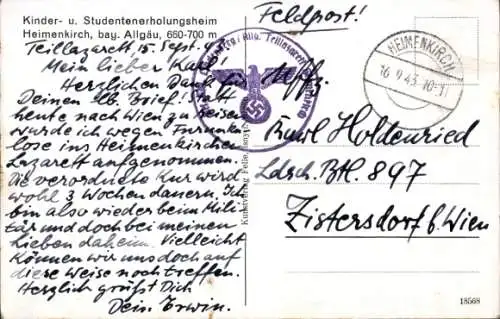 Kinder- u. Studentenerholungsheim
Heimenkirch, bay. Allgäu, 660-700 m
Teillazarett 15. Sept. 43
Mein lieber Karl!
Herzlichen Dank für
Deinen lb. Brief! Statt
heute nach Wien zu reisen
wurde ich wegen Furunku
lose ins Heimenkirchen
Lazarett aufgenommen.
Die verordnete Kur wird
wohl 3 Wochen dauern. Ich
bin also wieder beim Mili
tär und doch bei meinen
Lieben daheim. Vielleicht
können wir uns doch auf
diese Weise noch treffen.
Herzlich grüßt Dich
Dein Erwin.
Kunstverlag
Feldpost!
HEIMENKIRCH
16.9.43.10-11
Uffz.
Karl Holdenried
Ldsch. Btl. 897
Zistersdorf b. Wien
18568